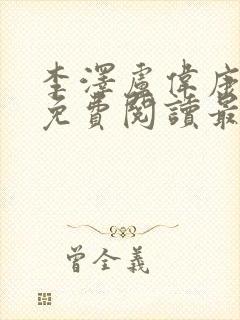 李澤盧偉康
免費閱讀最
曾全義